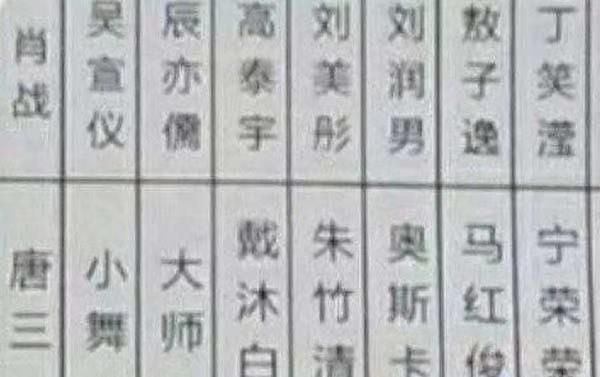 肖战
吴宣仪
辰亦儒
高泰宇
刘美彤
刘润男
敖子逸
丁笑滢
唐三
小舞
大师
戴沐白
朱竹清
奥斯卡
马红俊
宁荣荣